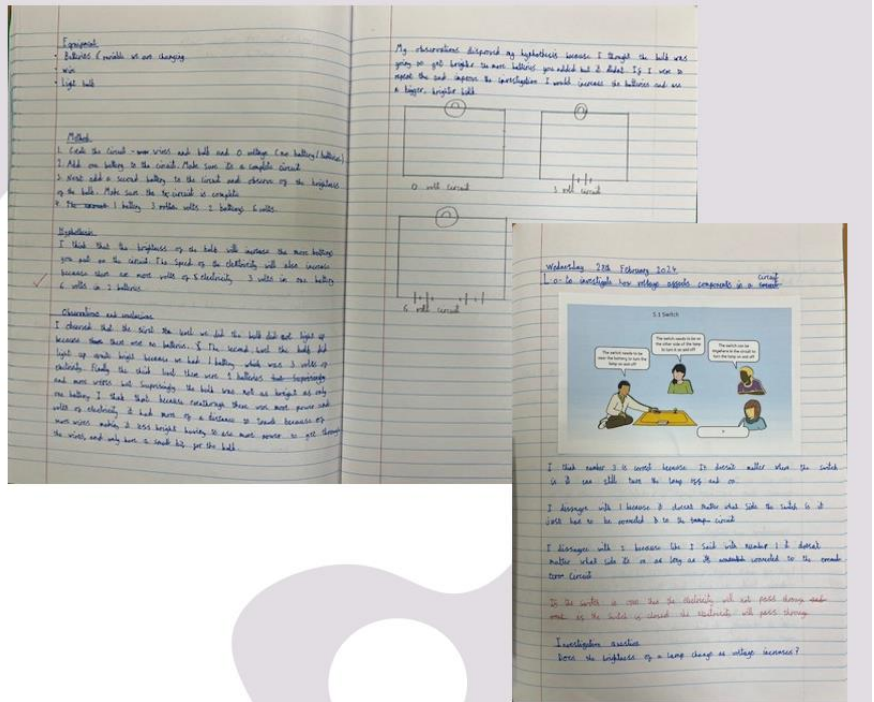 Equipment
Batteries (variable we are changing
wire
Light bulb
Method
1. Create the circuit - wires and bulb and 0 voltage (no battery/batteries)
2. Add one battery to the circuit. Make sure its a complete circuit
3. Next add a second battery to the circuit and observe the brightness
of the bulb. Make sure the circuit is complete
4. 1 battery 3 volts 2 batterys 6 volts.
Hypothesis
I think that the brightness of the bulb will increase the more batterys
you put on the circuit. The speed of the electricity will also increase
because there are more volts of electricity 3 volts in one battery
6 volts in 2 batteries.
Observations and conclusions
I observed that the first the level we did the bulb did not light up
because there were no batteries. The second level the bulb did
light up quite bright because we had 1 battery which was 3 volts of
electricity. Finally the third level there were 2 batteries but surprisingly
and more wires but surprisingly the bulb was not as bright as only
one battery I think that because eventhough there was more power and
volts of electricity it had more of a distance to travel because of
more wires making it less bright having to use more power to get through
the wires and only have a small bit for the bulb.
My observations disproved my hyphothesis because I thought the bulb was
going to get brighter the more batteries you added but it didnt. If I were to
repeat the and improve the investigation I would increase the batteries and use
a bigger, brighter bulb.
0 volt circuit
3 volt circuit
6 volt circuit
Wednesday 28th February 2024
circuit
L.O. to investigate how voltage affects components in a
5.1 Switch
The switch needs to be near the battery to turn the lamp on and off
The switch needs to be on the other side of the lamp to turn it on and off
The switch can be anywhere in the circuit to turn the lamp on and off
I think number 3 is correct because It doesnt matter where the switch
is it can still turn the lamp off and on
I dissagree with 1 because it doesnt matter what side the switch is it
just has to be connected to the circuit
I dissagree with 2 because like I said with number 1 it doesnt
matter what side its on as long as its connected to the
circuit
If the switch is open then the electricity will not pass through
as the switch is closed the electricity will pass through
Investigation question
Does the brightness of a lamp change as voltage increases?